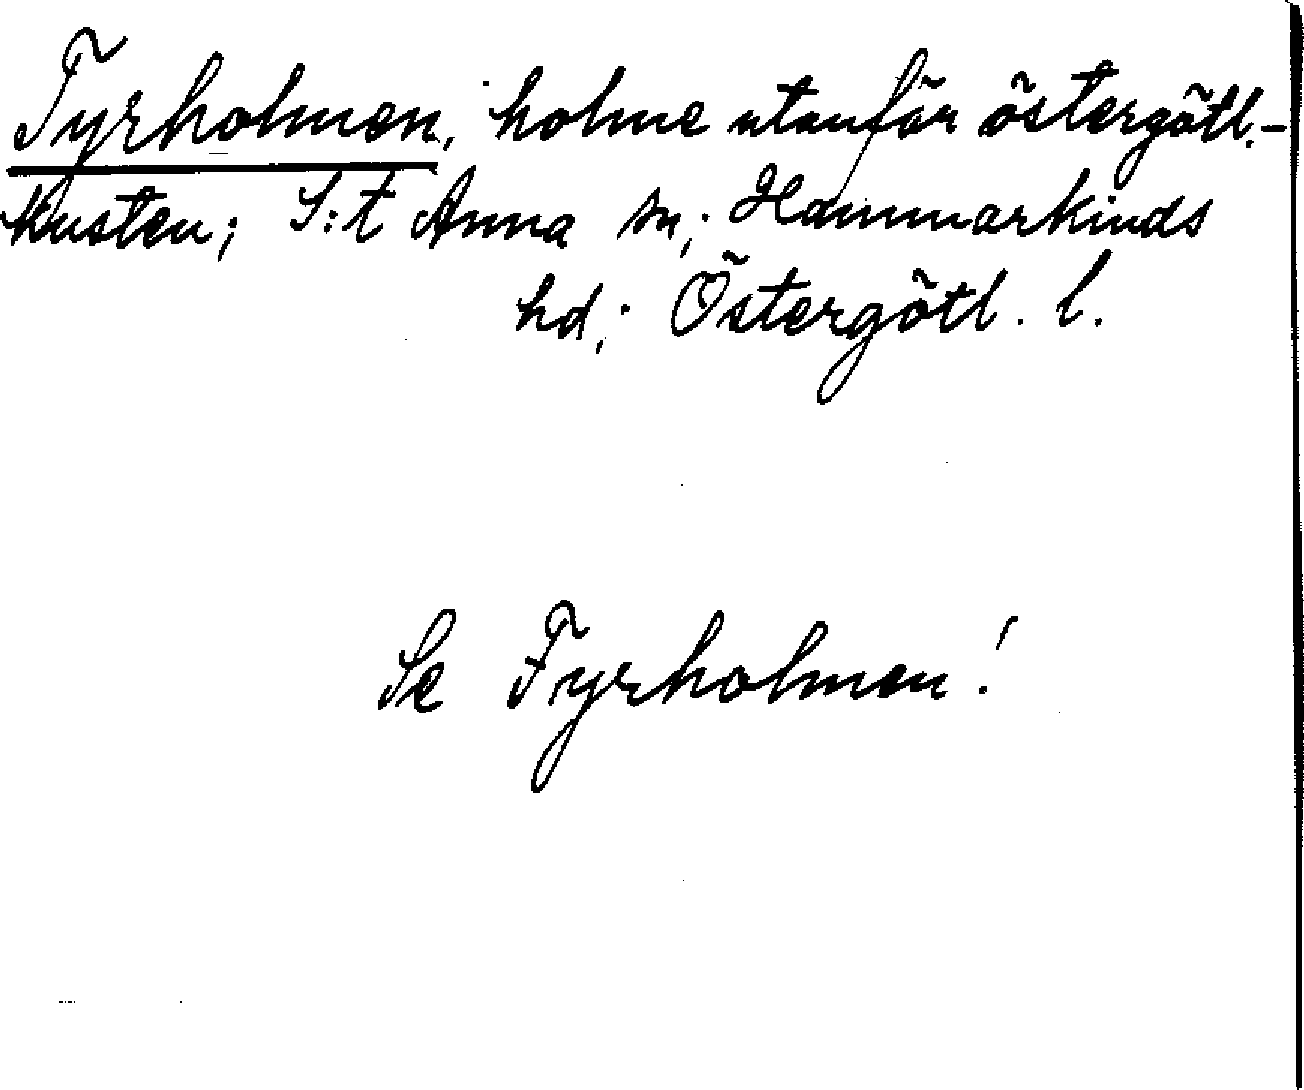 Tyrholmen, holme utanför östergötl.-
kusten; S:t Anna sn; Hammarkinds
hd; Östergötl. l.
Se Fyrholmen!